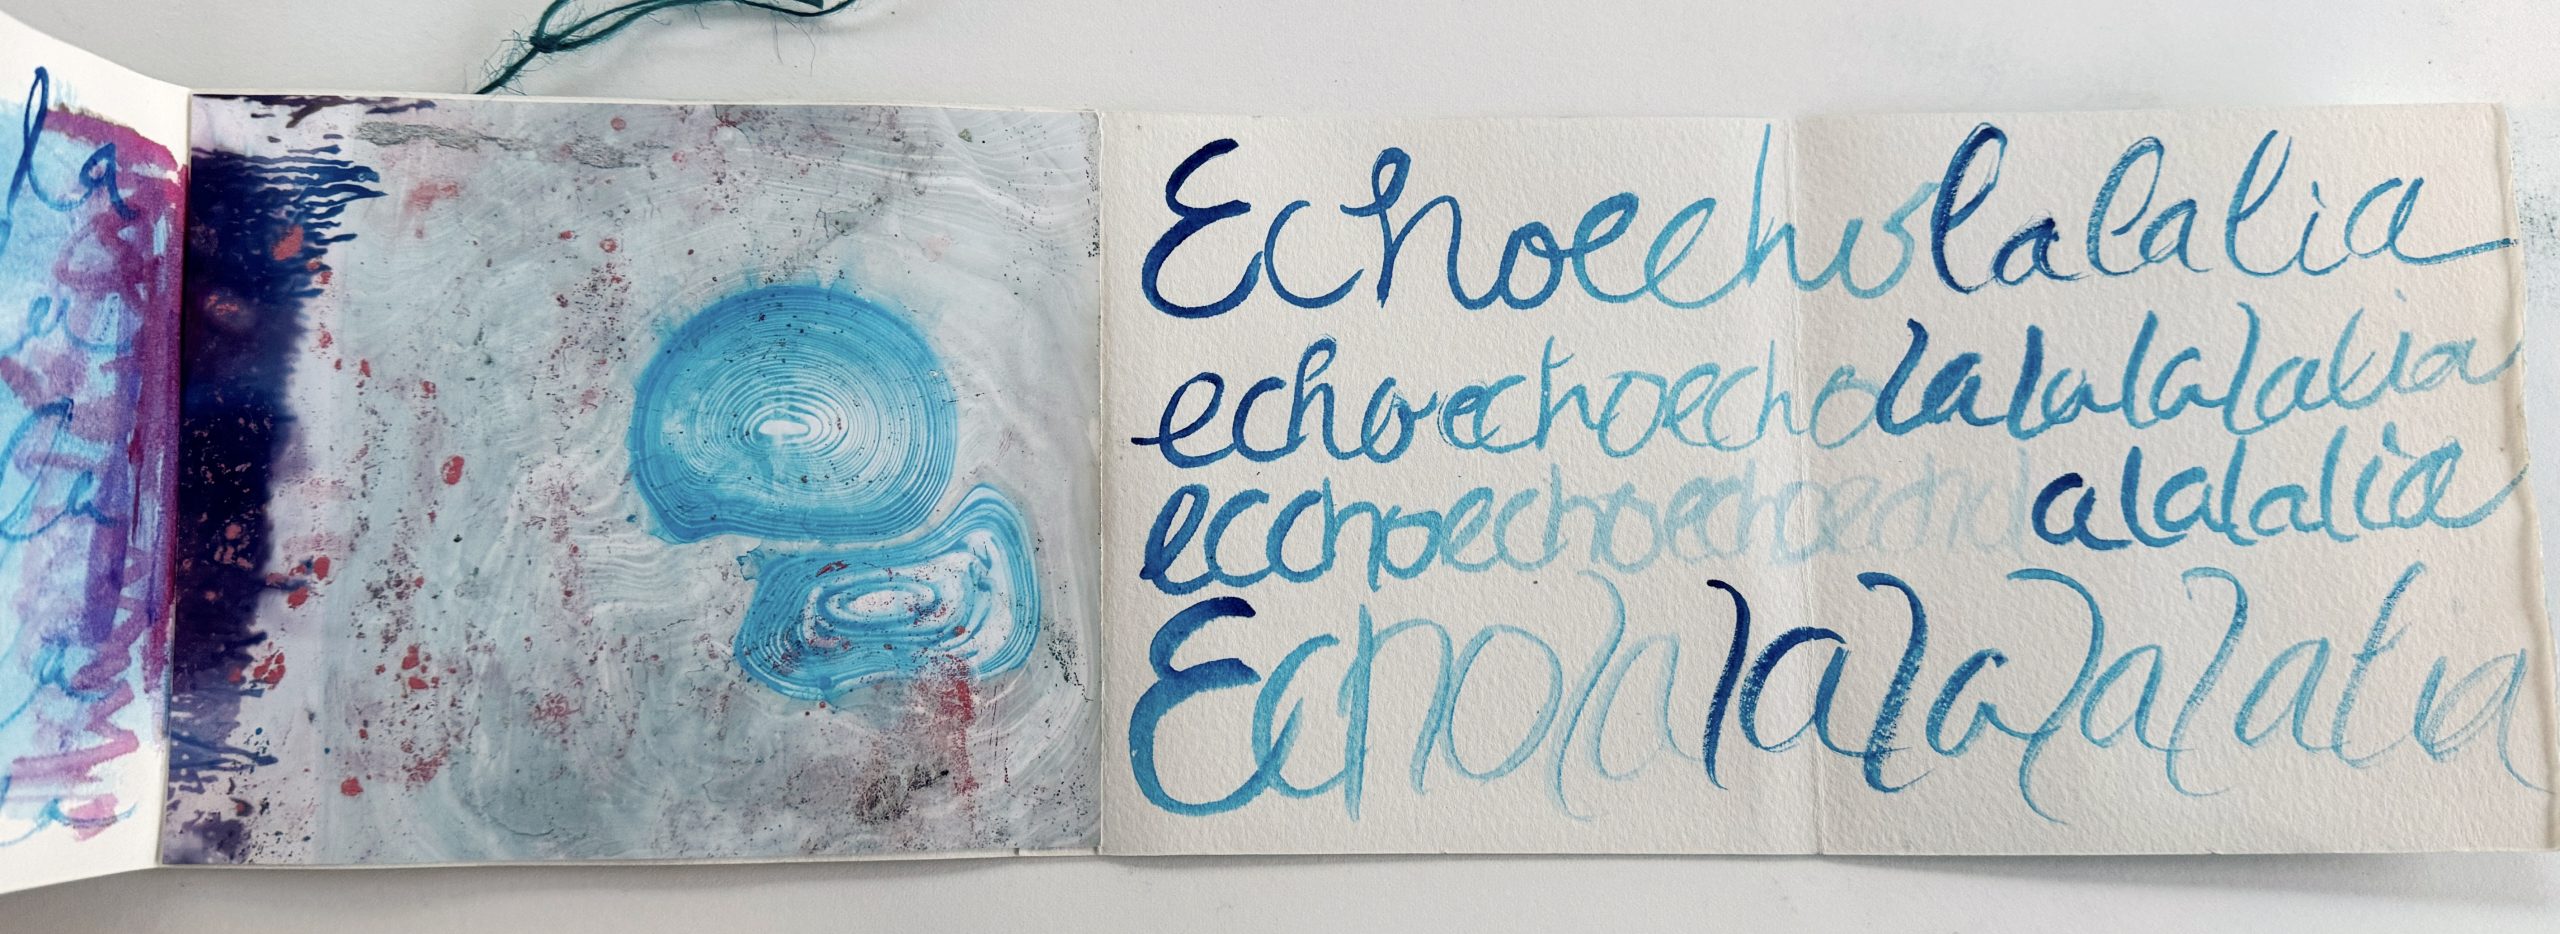 la
la
Echoecholalalia
echoechoecholalalalalia
ecchoechoechoechoecholalalalia
Echolalalalalalia